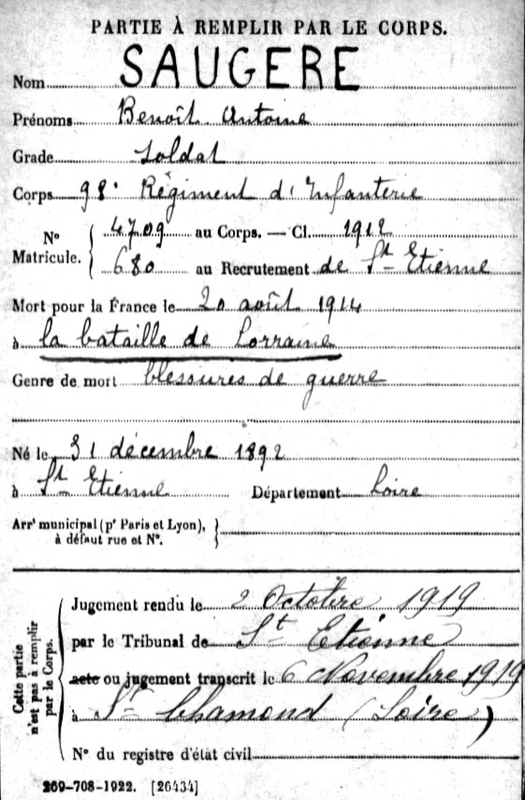 PARTIE À REMPLIR PAR LE CORPS.
Nom SAUGERE
Prénoms Benoît Antoine
Grade Soldat
Corps 98e Régiment d'Infanterie
N° Matricule. { 4709 au Corps. — Cl. 1912
680 au Recrutement de St Etienne
Mort pour la France le 20 août 1914
à la bataille de Lorraine
Genre de mort blessures de guerre
Né le 31 décembre 1892
à St Etienne Département Loire
Arrt municipal (pr Paris et Lyon), }
à défaut rue et N°.
Cette partie
n'est pas à remplir
par le Corps.
Jugement rendu le 2 Octobre 1919
par le Tribunal de St Etienne
acte ou jugement transcrit le 6 Novembre 1919
à St Chamond (Loire)
N° du registre d'état civil
269-708-1922. [26434]